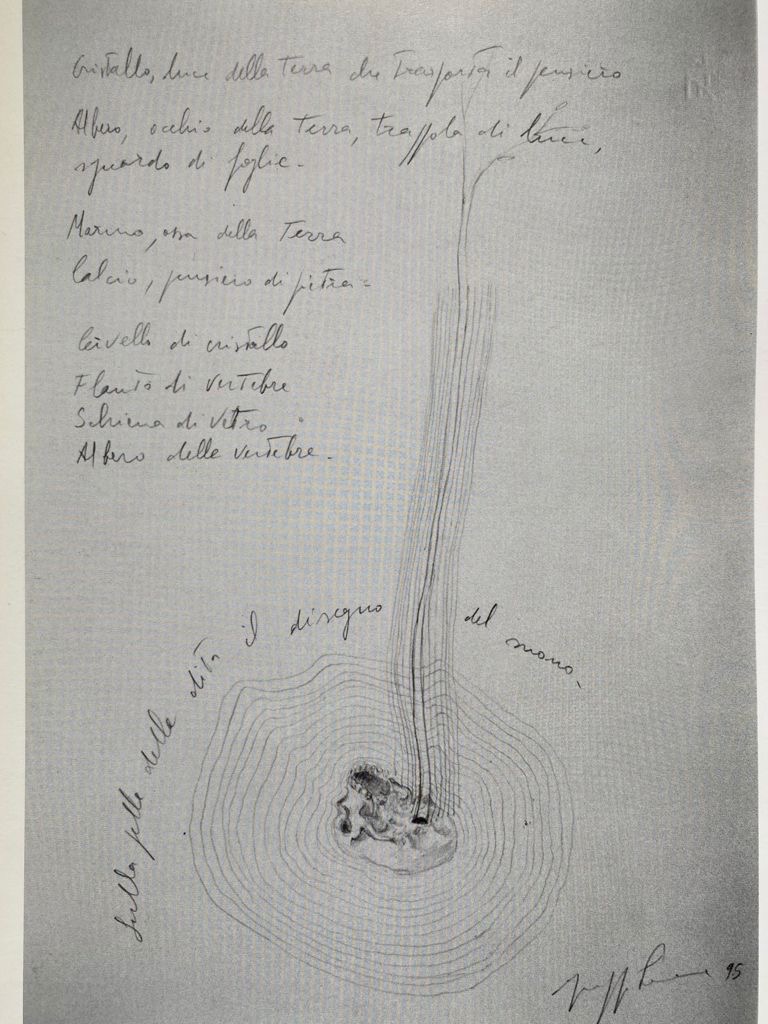 Cristallo, luce della Terra che trasporta il pensiero
Albero, occhio della Terra, trappola di luce,
sguardo di foglie -
Marmo, ossa della Terra
Calcio, pensiero di pietra -
Cervello di cristallo
Flauto di vertebre
Schiena di vetro
Albero delle vertebre -
Sulla pelle delle dita il disegno del suono -
95